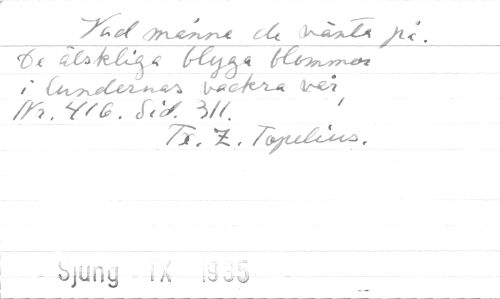 Vad månne de vänta på.
De älskliga blyga blommor
i lundernas vackra vår,
Nr. 416. Sid. 311.
Tx. Z. Topelius.
Sjung IX 1935